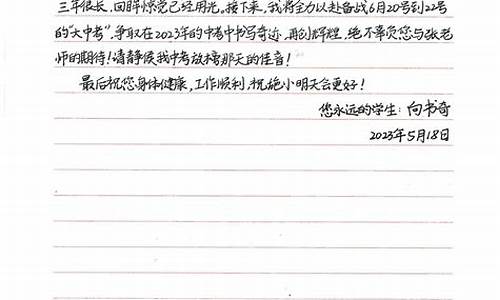 三年很长，回眸惊觉已经用光。接下来，我将全力以赴备战6月20号到22号
的"大中考"，争取在2023年的中考中书写奇迹，再创辉煌，绝不辜负您与张老
师的期待！请静候我中考放榜那天的佳音！
最后祝您身体健康，工作顺利，祝施小明天会更好！
您永远的学生：向书奇
2023年5月18日